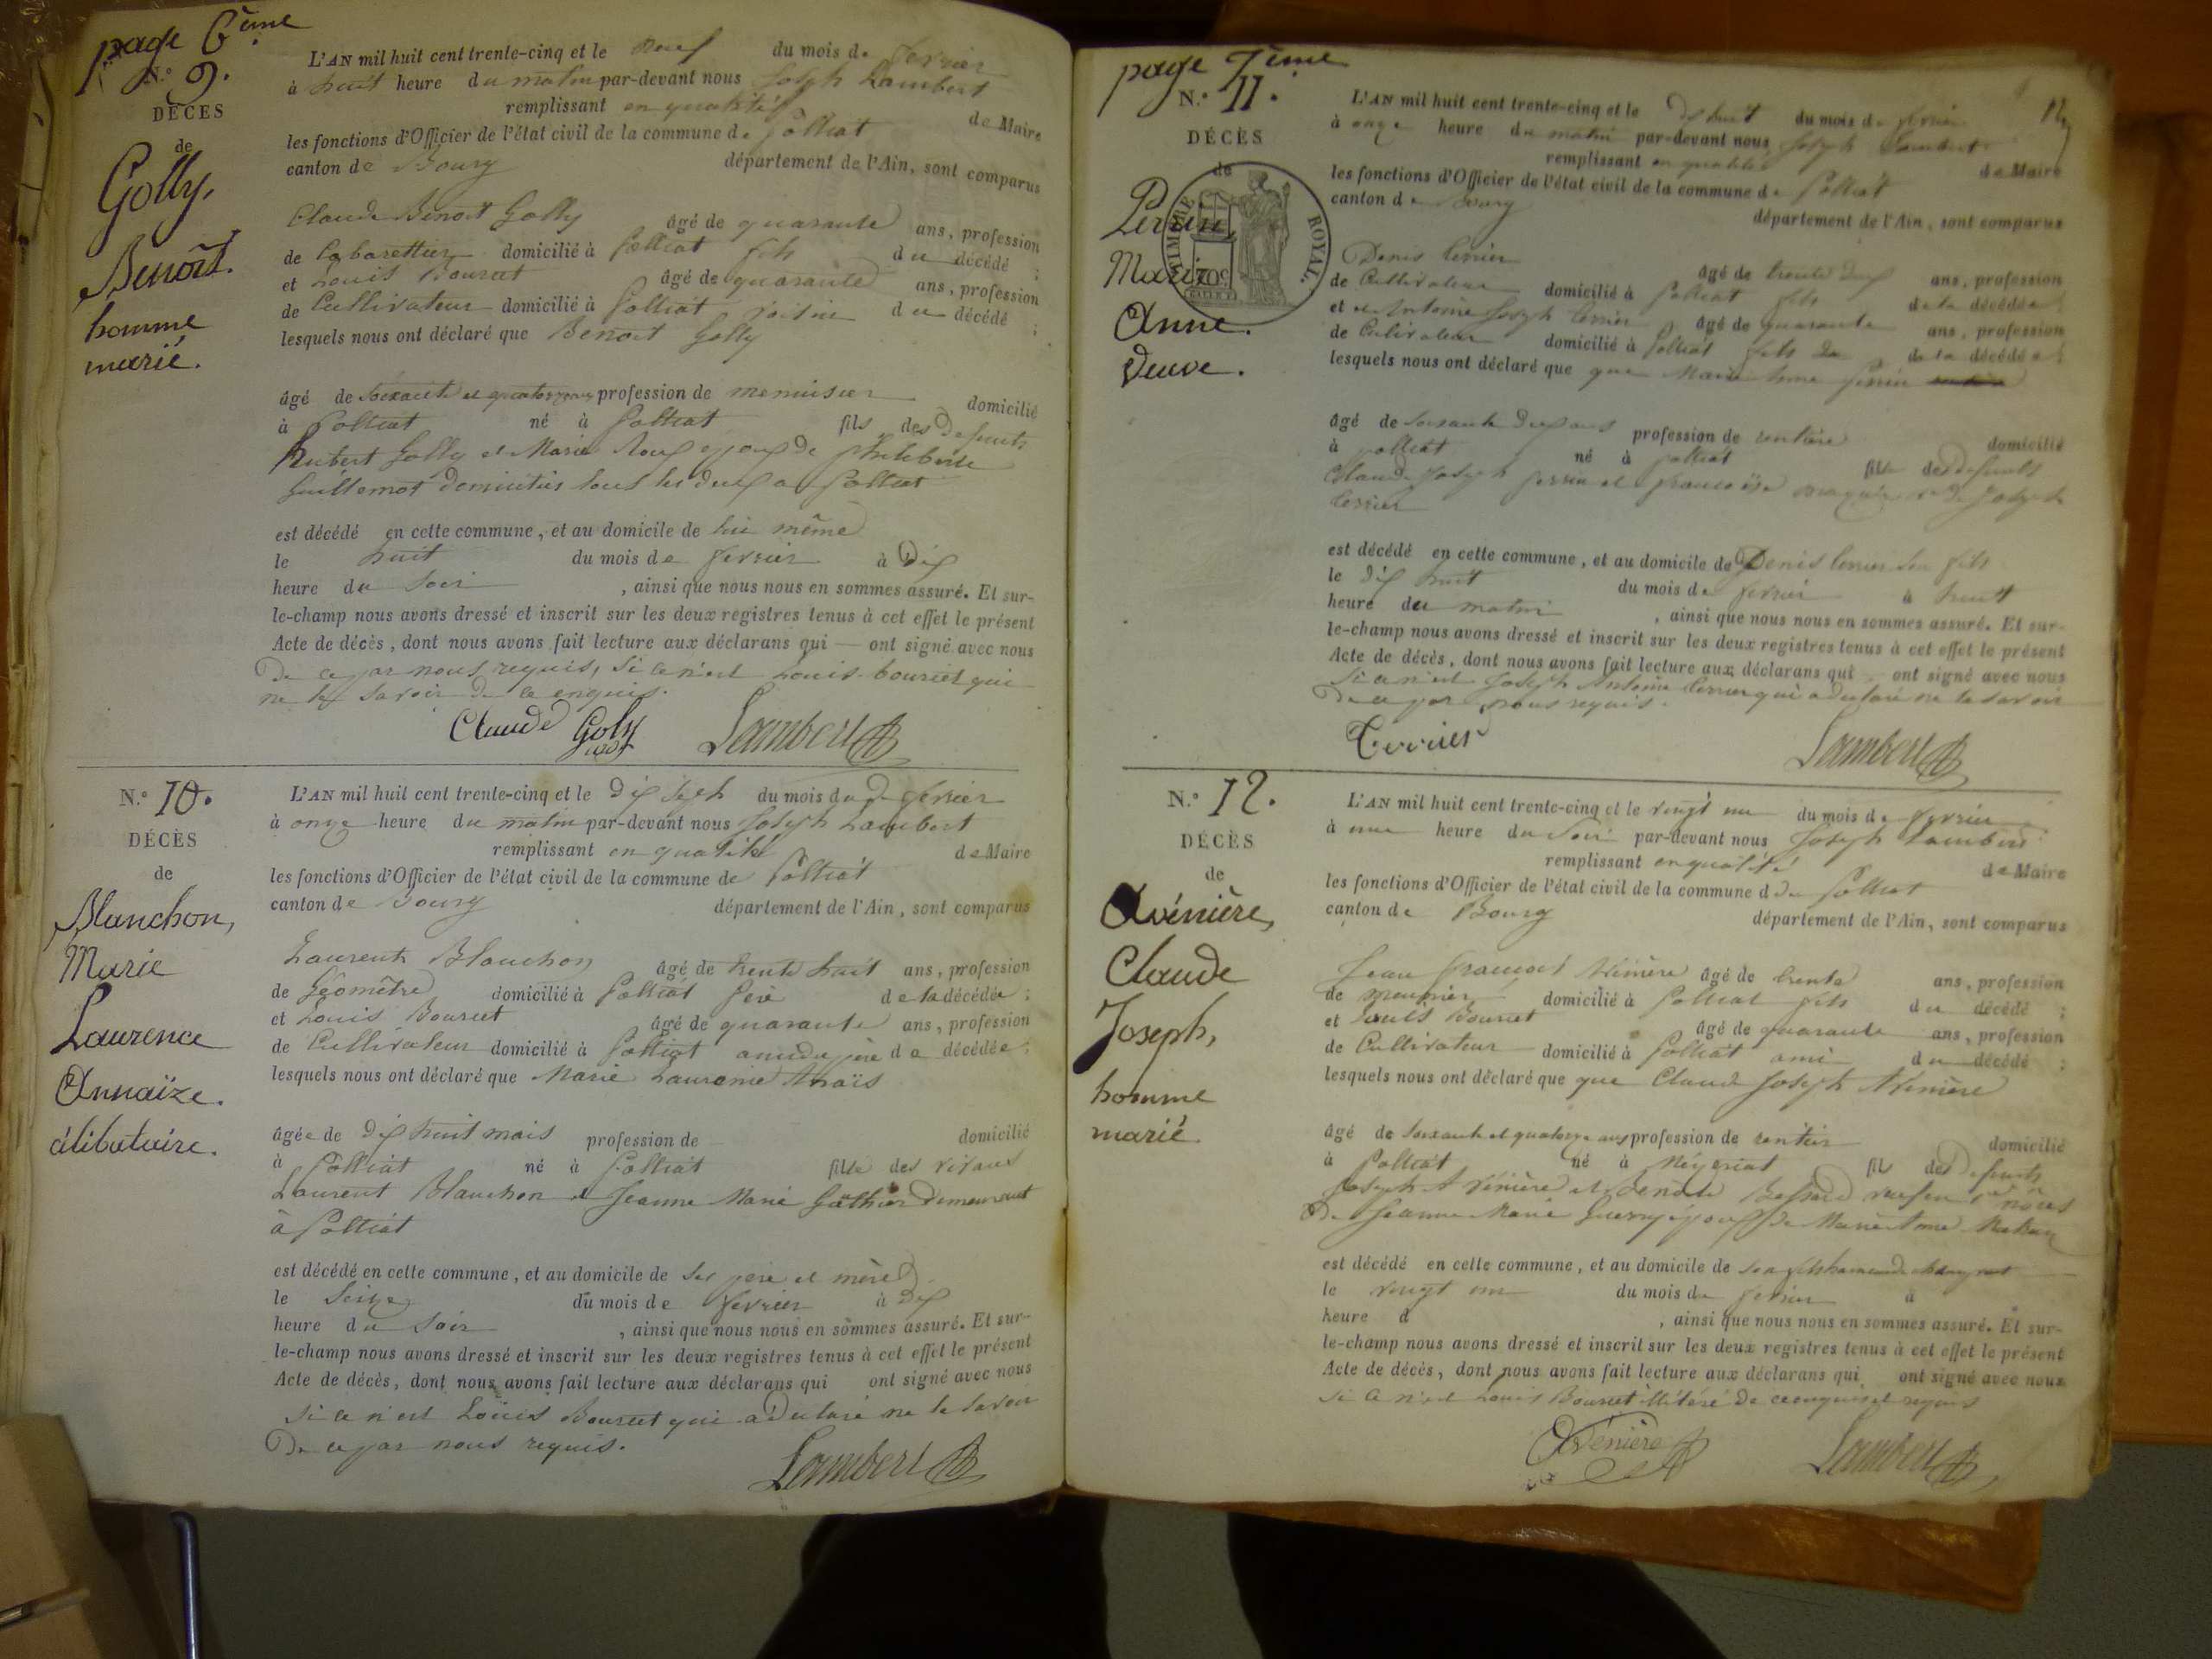 page 6ème
N.° 9.
DÉCÈS
de
Golly,
Benoît.
homme
marié.
L'AN mil huit cent trente-cinq et le neuf du mois de février
à huit heure du matin par-devant nous Joseph Lambert
remplissant en qualité de Maire
les fonctions d'Officier de l'état civil de la commune de Polliat
canton de Bourg département de l'Ain, sont comparus
Claude Benoit Golly âgé de quarante ans, profession
de Cabarettier domicilié à Polliat fils du décédé ;
et Louis Bourcet âgé de quarante ans, profession
de Cultivateur domicilié à Polliat voisin du décédé ;
lesquels nous ont déclaré que Benoit Golly
âgé de soixante et quatorze ans profession de menuisier domicilié
à Polliat né à Polliat fils des defunts
Golly et Marie époux de Philiberte
Guillemot domiciliés tous les deux a Polliat
est décédé en cette commune, et au domicile de lui même
le huit du mois de fevrier à dix
heure du soir , ainsi que nous nous en sommes assuré. Et sur-
le-champ nous avons dressé et inscrit sur les deux registres tenus à cet effet le présent
Acte de décès, dont nous avons fait lecture aux déclarans qui — ont signé avec nous
De ce par nous requis, si ce n'est Louis bourcet qui
ne le savoir de ce enquis.
Claude Goly Lambert
N.° 10.
DÉCÈS
de
Blanchon,
Marie
Laurence
Annaïze.
célibataire.
L'AN mil huit cent trente-cinq et le dix sept du mois du de fevrier
à onze heure du matin par-devant nous Joseph Lambert
remplissant en qualité de Maire
les fonctions d'Officier de l'état civil de la commune de Polliat
canton de Bourg département de l'Ain, sont comparus
Laurent Blanchon âgé de trente huit ans, profession
de Géomètre domicilié à Polliat père de la décédée ;
et Louis Bourcet âgé de quarante ans, profession
de Cultivateur domicilié à Polliat ami du père de décédée ;
lesquels nous ont déclaré que Marie Laurence Anaïs
âgée de dix huit mois profession de domicilié
à Polliat né à Polliat fille des vivans
Laurent Blanchon et Jeanne Marie demeurant
à Polliat
est décédé en cette commune, et au domicile de ses père et mère
le seize du mois de fevrier à dix
heure du soir , ainsi que nous nous en sommes assuré. Et sur-
le-champ nous avons dressé et inscrit sur les deux registres tenus à cet effet le présent
Acte de décès, dont nous avons fait lecture aux déclarans qui ont signé avec nous
si ce n'est Louis Bourcet qui a declaré ne le savoir
De ce par nous requis.
Lambert
page 7ème
N.° 11.
DÉCÈS
de
Perrin,
Marie
Anne.
Veuve.
TIMBRE ROYAL
L'AN mil huit cent trente-cinq et le dix huit du mois de fevrier
à onze heure du matin par-devant nous Joseph Lambert
remplissant en qualité de Maire
les fonctions d'Officier de l'état civil de la commune de Polliat
canton de Bourg département de l'Ain, sont comparus
Denis Terrier âgé de trente deux ans, profession
de Cultivateur domicilié à Polliat fils de la décédée ;
et Antoine Joseph Terrier âgé de quarante ans, profession
de Cultivateur domicilié à Polliat fils de la décédée ;
lesquels nous ont déclaré que que Marie Anne Perrin
âgé de soixante deux ans profession de rentière domicilié
à polliat né à polliat fille des defunts
Claude Joseph perrin et françoise de Joseph
Terrier
est décédé en cette commune, et au domicile de Denis Terrier son fils
le dix huit du mois de fevrier à huit
heure du matin , ainsi que nous nous en sommes assuré. Et sur-
le-champ nous avons dressé et inscrit sur les deux registres tenus à cet effet le présent
Acte de décès, dont nous avons fait lecture aux déclarans qui ont signé avec nous
si ce n'est Joseph Antoine Terrier qui a declaré ne le savoir
De ce par nous requis.
Terrier Lambert
N.° 12.
DÉCÈS
de
Avénière,
Claude
Joseph,
homme
marié.
L'AN mil huit cent trente-cinq et le vingt un du mois de fevrier
à une heure du soir par-devant nous Joseph Lambert
remplissant en qualité de Maire
les fonctions d'Officier de l'état civil de la commune d de Polliat
canton de Bourg département de l'Ain, sont comparus
Jean françois Avénière âgé de trente ans, profession
de meunier domicilié à Polliat fils du décédé ;
et Louis Bourcet âgé de quarante ans, profession
de Cultivateur domicilié à Polliat ami du décédé ;
lesquels nous ont déclaré que que Claude Joseph Avénière
âgé de soixante et quatorze ans profession de rentier domicilié
à Polliat né à Mézeriat fils des defunts
Joseph Avénière et veuf en 1res nôces
De Jeanne Marie époux de Marie Anne
est décédé en cette commune, et au domicile de son fils
le vingt un du mois de fevrier à
heure d , ainsi que nous nous en sommes assuré. Et sur-
le-champ nous avons dressé et inscrit sur les deux registres tenus à cet effet le présent
Acte de décès, dont nous avons fait lecture aux déclarans qui ont signé avec nous
si ce n'est Louis Bourcet illétéré de ce enquis et requis
Avénière Lambert